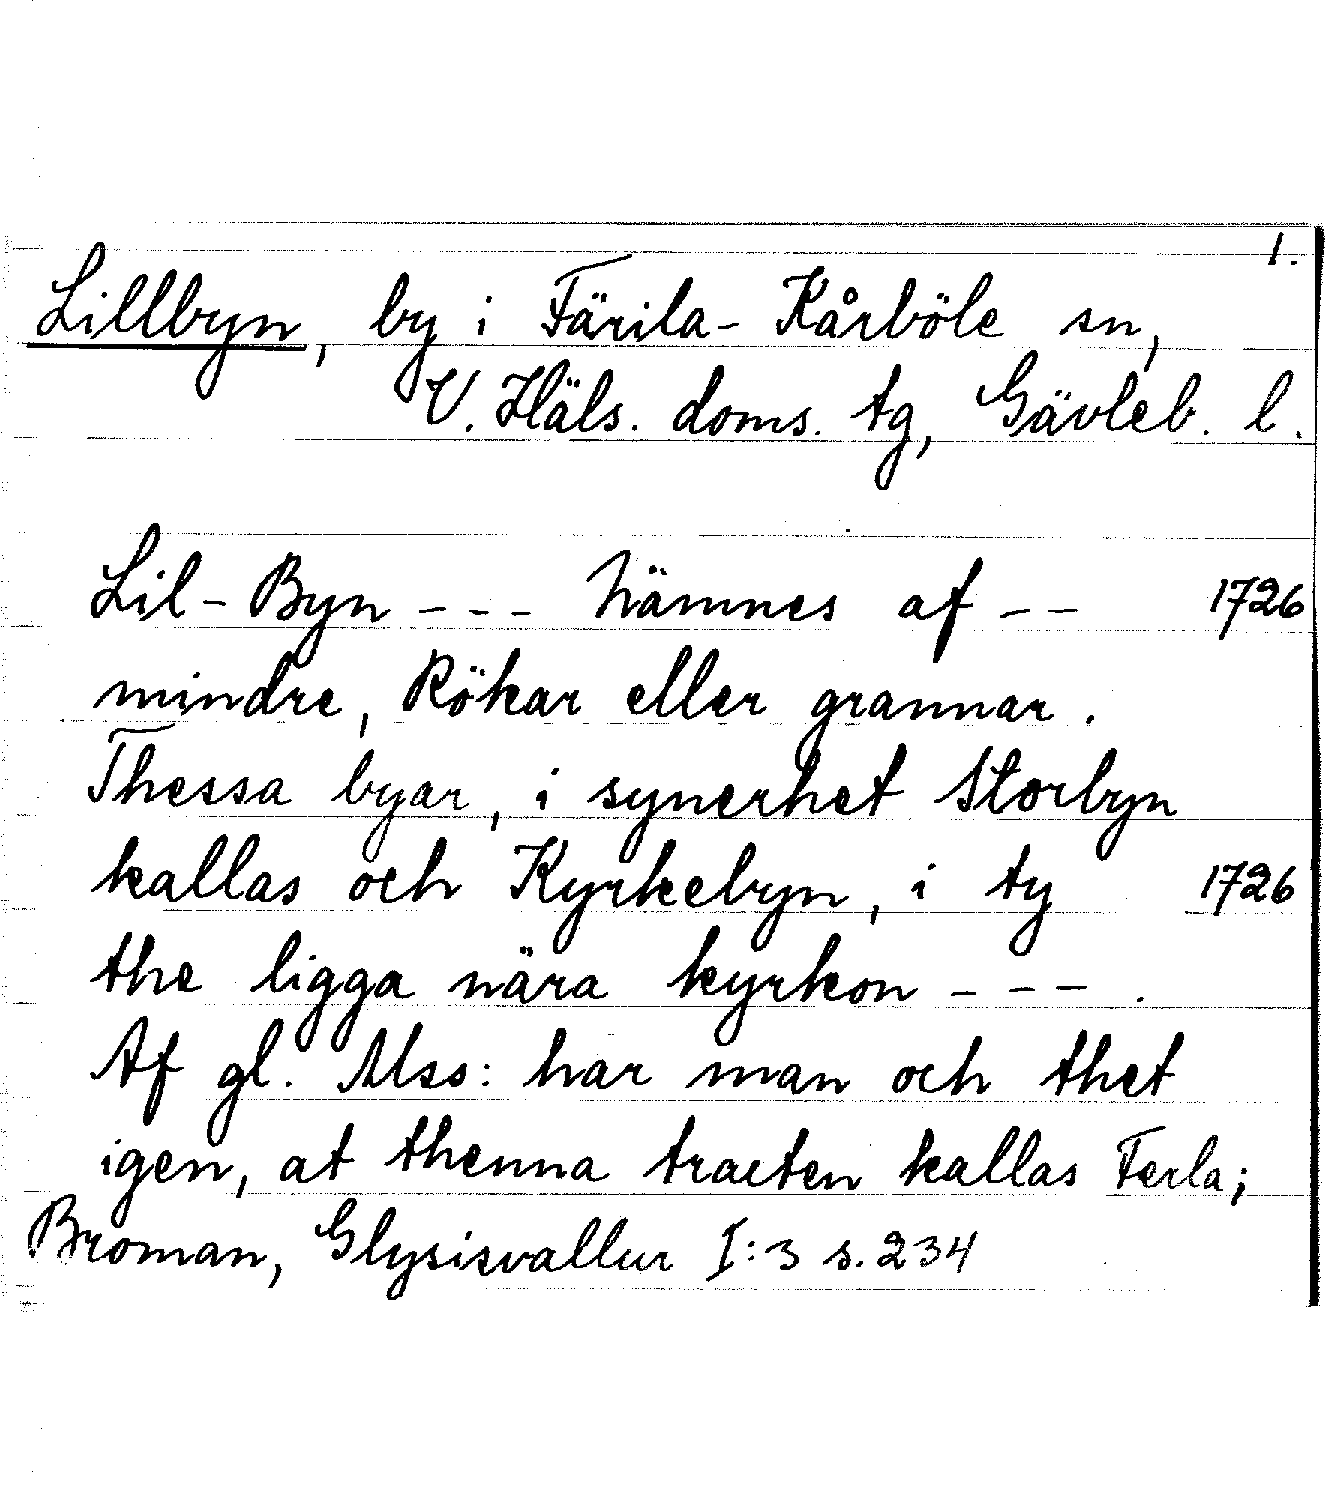 1.
Lillbyn, by i Färila-Kårböle sn,
V. Häls. doms. tg, Gävleb. l.
Lil-Byn --- Nämnes af -- 1726
mindre, Rökar eller grannar.
Thessa byar, i synerhet Storbyn
kallas och Kyrkebyn, i ty 1726
the ligga nära kyrkon ---.
Af gl. Mss: har man och thet
igen, at thenna tracten kallas Ferla;
Broman, Glysisvallur I:3 s. 234